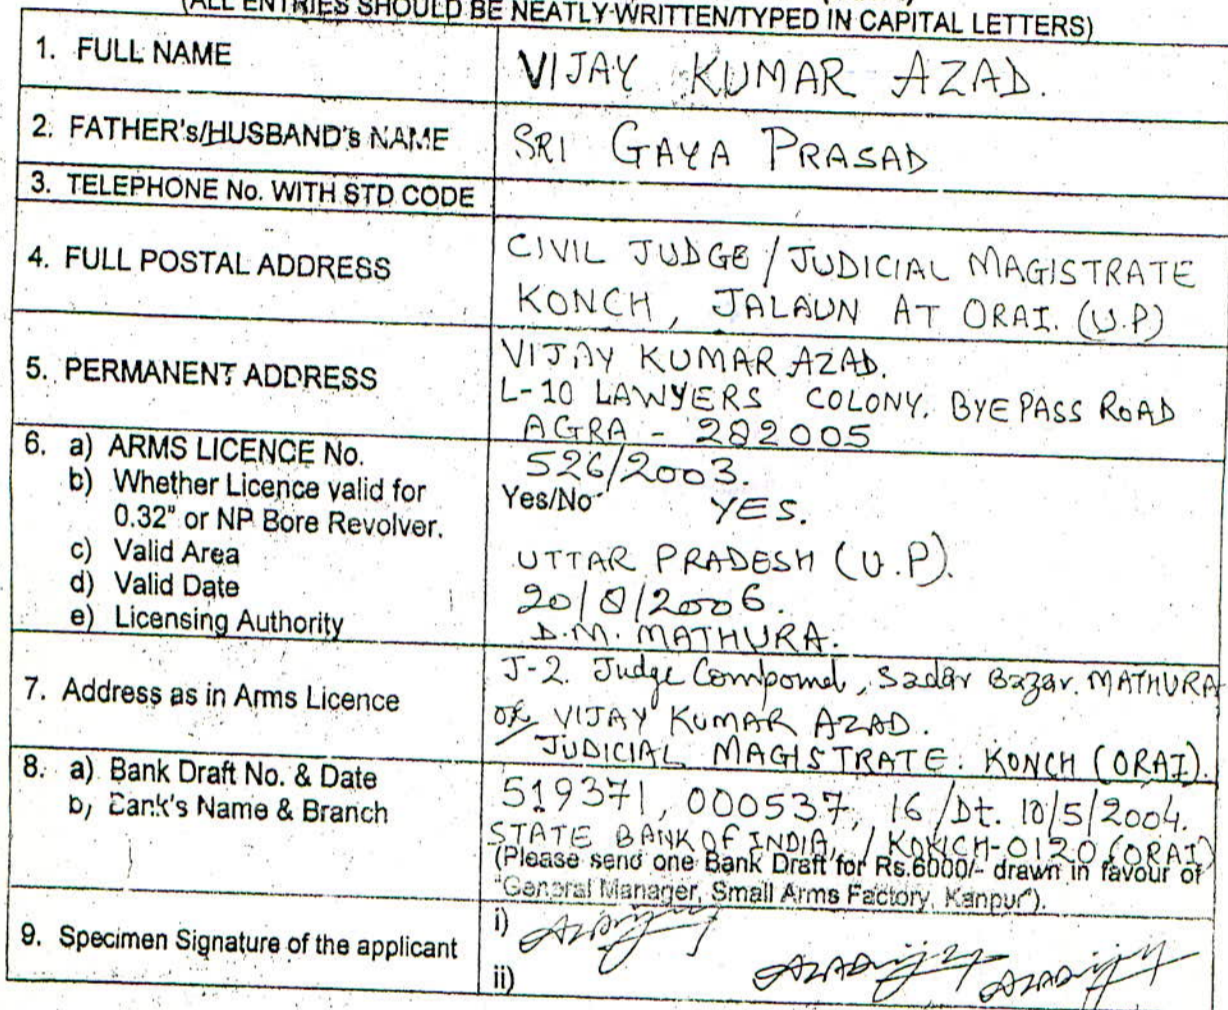 (ALL ENTRIES SHOULD BE NEATLY WRITTEN/TYPED IN CAPITAL LETTERS)
1. FULL NAME
VIJAY KUMAR AZAD.
2. FATHER's/HUSBAND's NAME
SRI GAYA PRASAD
3. TELEPHONE No. WITH STD CODE
4. FULL POSTAL ADDRESS
CIVIL JUDGE / JUDICIAL MAGISTRATE
KONCH, JALAUN AT ORAI. (U.P)
5. PERMANENT ADDRESS
VIJAY KUMAR AZAD.
L-10 LAWYERS COLONY. BYE PASS ROAD
AGRA - 282005
6. a) ARMS LICENCE No.
526/2003.
b) Whether Licence valid for
0.32" or NP Bore Revolver.
Yes/No YES.
c) Valid Area
UTTAR PRADESH (U.P).
d) Valid Date
20/8/2006.
e) Licensing Authority
D.M. MATHURA.
7. Address as in Arms Licence
J-2. Judge Compound, Sadar Bazar. MATHURA
VIJAY KUMAR AZAD.
JUDICIAL MAGISTRATE. KONCH (ORAI).
8. a) Bank Draft No. & Date
b) Bank's Name & Branch
519371, 000537, 16/Dt. 10/5/2004.
STATE BANK OF INDIA, / KONCH-0120 (ORAI)
(Please send one Bank Draft for Rs.6000/- drawn in favour of
"General Manager, Small Arms Factory, Kanpur").
9. Specimen Signature of the applicant
i)
ii)